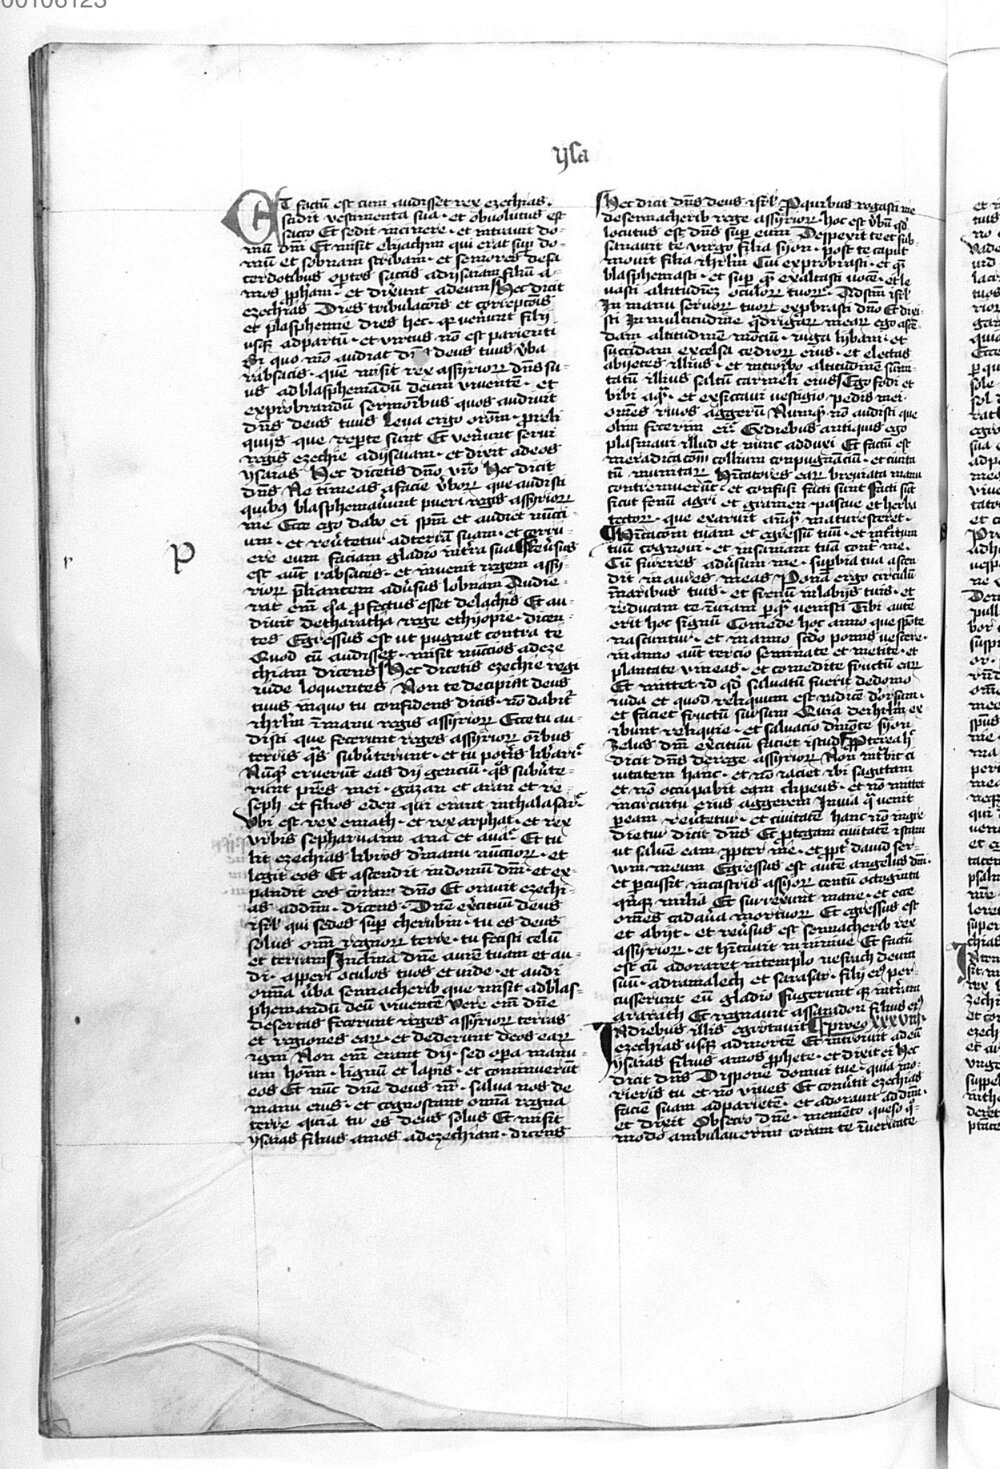 ysa
Et factū est cum audisset rex ezechias·
scidit vestimenta sua· et obuolutus est
sacco Et sedit in cinere· et intrauit do-
mū dn̄i Et misit elyachim qui erat sup do-
mū et sobnam scribam· et seniores de sa
cerdotibus op̄tos saccis ad ysaiam filiū a-
mos ꝓpham· et dixerunt ad eum Hec dicit
ezechias Dies tribulacōis et correpcōis
et plasphemie dies hec· qr venerunt filij
usqꝫ ad partū· et virtus nō est parienti
Si quo mō audiat dn̄s deus tuus v̄ba
rabsacis· quē misit rex assyrioꝝ dn̄s su-
us ad blasphemādū deum viuentē· et
exprobrandū sermōibus quos audiuit
dn̄s deus tuus leua ergo orōm· p reli
quijs que rep̄te sunt Et venerunt serui
regis ezechie ad ysaiam· et dixit ad eos
ysaias Hec dicetis dn̄o vr̄o Hec dicit
dn̄s Ne timeas a facie v̄boꝝ que audisti
quibꝰ blasphemauerunt pueri regis assyrioꝝ
me Ecce ego dabo ei spm̄ et audiet nūcci
um· et reu̓tetur ad terrā suam· et corru
ere eum faciam gladio in terra sua Reu̓sus
est aut̄ rabsaces· et inuenit regem assy-
rioꝝ p̄liantem adu̓sus lobnam Audie-
rat em̄ qa profectus esset de lachis Et au-
diuit de tharatha rege ethyopie· dicen-
tes Egressus est ut pugnet contra te
Quod cū audisset· misit nūccios ad eze
chiam dicens Hec dicetis ezechie regi
iude loquentes Non te decipiat deus
tuus in quo tu confidens dicis· nō dabit̄
ihrlm̄ ī manu regis assyrioꝝ Ecce tu au-
disti que fecerunt reges assyrioꝝ om̄ibus
terris qˢ subu̓terunt· et tu pot̓is lib̓ari
Nūqd̓ eruerunt eas dij genciū· qˢ subu̓te-
runt p̄res mei· gazan et aran et re
seph et filios eden qui erant in thalasar
Vbi est rex emath· et rex arphat· et rex
vrbis sepharuaim ana et aua· Et tu
lit ezechias libros d̓ manu nūccioꝝ· et
legit eos Et ascendit in domū dn̄i· et ex-
pandit eos coram dn̄o Et orauit ezechi-
as ad dn̄m· dicens· Dn̄e exercituū deus
isrl̓ qui sedes sup cherubin· tu es deus
solus om̄i regnoꝝ terre· tu fecisti celū
et terram Inclina dn̄e aurē tuam et au-
di· aperi oculos tuos et vide· et audi
om̄ia v̄ba sennacherib que misit ad blas-
phemandū deū viuentē Vere em̄ dn̄e
desertas fecerunt reges assyrioꝝ terras
et regiones eaꝝ· et dederunt deos eaꝝ
igni Non em̄ erant dij· sed op̄a manu
um hom̄i· lignū et lapis· et cominuerūt
eos Et nūc dn̄e deus nr̄· salua nos de
manu eius· et cognoscant om̄ia regna
terre quia tu es deus solus Et misit
ysaias filius amos ad ezechiam· dicens
p
r
Hec dicit dn̄s deus isrl̓ P quibus rogasti me
de sennacherib rege assyrioꝝ· hoc est v̄bū qd̓
locutus est dn̄s sup eum Despexit te et sub-
sannauit te virgo filia syon· post te caput
mouit filia ihrlm̄ Cui exprobrasti· et qm̄
blasphemasti· et sup qm̄ exaltasti vocē· et le
uasti altitudinez oculoꝝ tuoꝝ· Ad sm̄ isrl̓
In manu seruoꝝ tuoꝝ exprobrasti dn̄o Et dixi-
sti In multitudine qdrigaꝝ meaꝝ ego asce
dam altitudinem mōciū· iuga lybani· et
succidam excelsa cedroꝝ eius· et electas
abyetes illius· et introibo altitudinē sum-
tatū illius saltū carmeli eius Ego fodi et
bibi aqꝫ· et exsiccaui vestigio pedis mei
om̄es riuos aggerū Nunqd̓ nō audisti que
olim fecerim ei Ex diebus antiquis ego
plasmaui illud et nunc adduxi Et factū est
in eradicacōm collium conpugnāciū· et ciuita
tū munitaꝝ Hītatores eaꝝ breuiata manu
contremuerūt· et confusi facti sunt facti sūt
sicut fenū agri et gramen pascue et herba
tectoꝝ· que exaruit anqꝫ maturesceret·
Hītacōm tuam et egressū tuū· et introitum
tuū cognoui· et insaniam tuā cont̓ me·
Cū fureres adu̓sum me· supbia tua ascen
dit in aures meas Ponā ergo circulū
ī naribus tuis· et frenū in labijs tuis· et
reducam te ī viam p qm̄ venisti Tibi autē
erit hoc signū Comede hoc anno que spōte
nascuntur· et in anno scdo pomis vescere·
in anno aut̄ tercio seminate et metite· et
plantate vineas· et comedite fructū eaꝝ
Et mittet id qd̓ saluatū fuerit de domo
iuda et quod reliquum est radicē deorsum·
et faciet fructū sursum Quia de ihrlm̄ ex-
ibunt reliquie· et saluacio d̓ mōte syon
Zelus dn̄i exercituū faciet istud Propterea h̓
dicit dn̄s de rege assyrioꝝ Non int̓bit ci
uitatem hanc· et nō iaciet ibi sagittam
et nō occupabit eam clipeus· et nō mittet
in circuitu eius aggerem In via qua venit
p eam reu̓tetur· et ciuitatē hanc nō ingre
dietur dicit dn̄s Et p̄tegam ciuitatē istam
ut saluē eam propter me· et ppt̓ dauid ser-
uum meum Egressus est autē angelus dn̄i·
et p̄cussit in castris assyrioꝝ centū octoginta
qūqꝫ milia Et surrexerunt mane· et ecce
om̄es cadau̓a mortuoꝝ Et egressus est
et abijt· et reu̓sus est sennacherib rex
assyrioꝝ· et hītauit in niniue Et factū
est cū adoraret in templo nesrach deum
suū· adramalech et sarasar· filij eiꝰ per-
cusserunt eū gladio fugeruntqꝫ in terram
ararath Et regnauit assaradon filius eiꝰ
In diebus illis egrotauit pro eo xxxviii·
ezechias usqꝫ ad mortē Et introiuit ad eū
ysaias filius amos ꝓphete· et dixit ei Hec
dicit dn̄s Dispone domui tue· quia mo-
rieris tu et nō viues Et conu̓tit ezechias
faciē suam ad parietē· et adorauit ad dn̄m·
et dixit Obsecro dn̄e· memēto queso qō-
modo ambulauerim coram te ī veritate